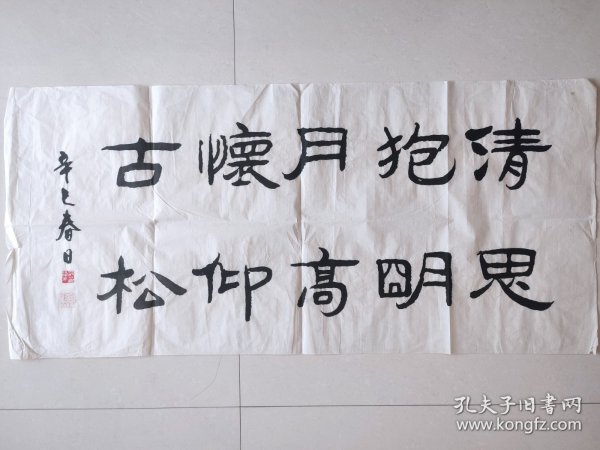 清思
抱朙
月高
懷仰
古松
辛巳春日
孔夫子旧书网
www.kongfz.com